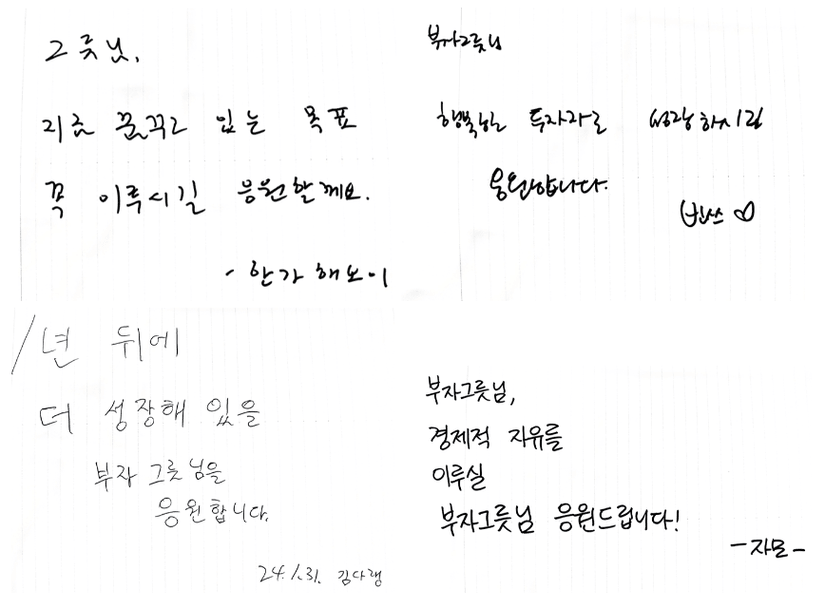 그릇님,
지금 꿈꾸고 있는 목표
꼭 이루시길 응원할께요.
- 한가해보이
부자그릇님
행복한 투자자로 성장하시길
응원합니다.
1년 뒤에
더 성장해 있을
부자 그릇님을
응원합니다.
24.1.31. 김다랭
부자그릇님,
경제적 자유를
이루실
부자그릇님 응원드립니다!
-자모-